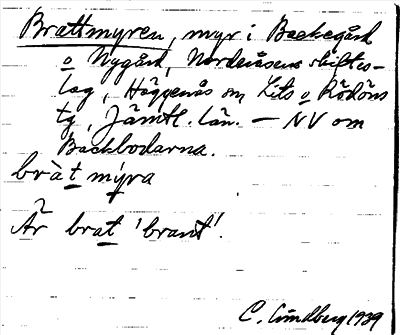 Brattmyren, myr i Backegård
o Nygård, Norderåsens skiftes-
lag, Häggenås sn, Lits o Rödöns
tg, Jämtl. län. — NV om
Backbodarna.
bràt mýra
Är brat 'brant'.
C. Lindberg 1939